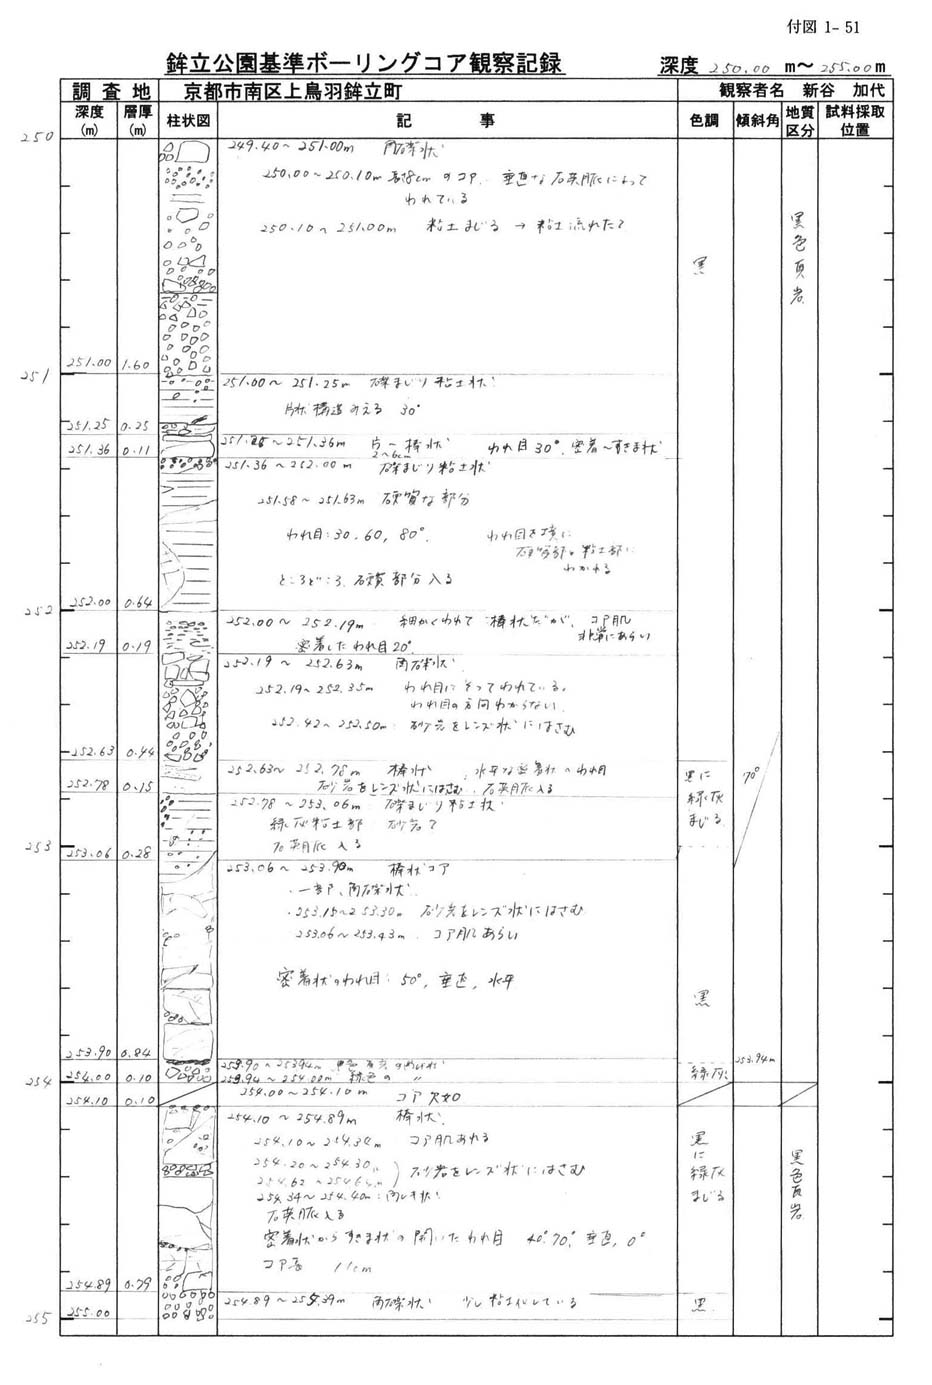 付図 1- 51
鉾立公園基準ボーリングコア観察記録
深度 250.00 m～ 255.00 m
調査地 京都市南区上鳥羽鉾立町 観察者名 新谷 加代
深度(m) 層厚(m) 柱状図 記事 色調 傾斜角 地質区分 試料採取位置
250
249.40～251.00m 角礫状
250.00～250.10m 長さ8cmのコア. 垂直な石英脈によって
われている
250.10～251.00m 粘土まじる → 粘土流れた?
黒
黒色頁岩
251.00 1.60
251
251.00～251.25m 礫まじり粘土状
片状構造みえる 30°
251.25 0.25
251.25～251.36m 片～棒状 われ目30°. 密着～すきま状
2～6cm
251.36 0.11
251.36～252.00m 礫まじり粘土状
251.58～251.63m 硬質な部分
われ目:30. 60, 80°. われ目を境に
硬質部と粘土部に
わかれる
ところどころ, 硬質部分入る
252.00 0.64
252
252.00～252.19m 細かくわれて 棒状だが, コア肌
非常にあらい
密着したわれ目20°.
252.19 0.19
252.19～252.63m 角礫状
252.19～252.35m われ目にそってわれている.
われ目の方向わからない.
252.42～252.50m 砂岩をレンズ状にはさむ
252.63 0.44
252.63～252.78m 棒状 水平な密着状のわれ目
砂岩をレンズ状にはさむ. 石英脈入る
252.78 0.15
黒に緑灰まじる
70°
252.78～253.06m 礫まじり粘土状
緑灰粘土部 砂岩?
石英脈入る
253
253.06 0.28
253.06～253.90m 棒状コア
・一部, 角礫状
・253.15～253.30m 砂岩をレンズ状にはさむ
253.06～253.43m. コア肌あらい
密着状のわれ目: 50°, 垂直, 水平
黒
253.90 0.84
253.90～253.94m
253.94m
253.94～254.00m 緑色の 〃
緑灰
254.00 0.10
254
254.00～254.10m コア欠如
254.10 0.10
254.10～254.89m 棒状.
254.10～254.34m コア肌あれる
254.20～254.30m
254.62～254.64m 砂岩をレンズ状にはさむ
254.34～254.40m: 角レキ状
石英脈入る
密着状からすきま状の開いたわれ目 40°70°, 垂直, 0°
コア長 11cm
黒に緑灰まじる
黒色頁岩
254.89 0.79
254.89～255.39m 角礫状 少し粘土化している
黒
255.00
255